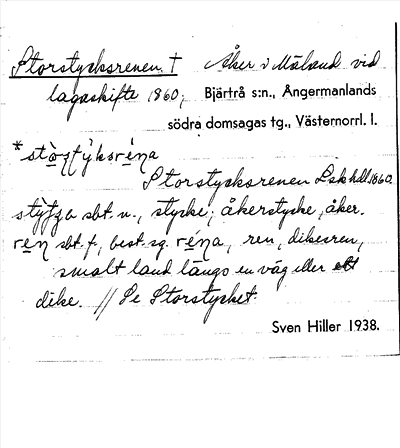 Storstycksrenen † Åker i Måland vid
lagaskifte 1860, Bjärtrå s:n., Ångermanlands
södra domsagas tg., Västernorrl. l.
Storstycksrenen Lskhdl. 1860.
sbt. n., stycke; åkerstycke, åker.
sbt. f., best. sg. ren, dikesren,
smalt land längs en väg eller ett
dike. // Se Storstycket.
Sven Hiller 1938.